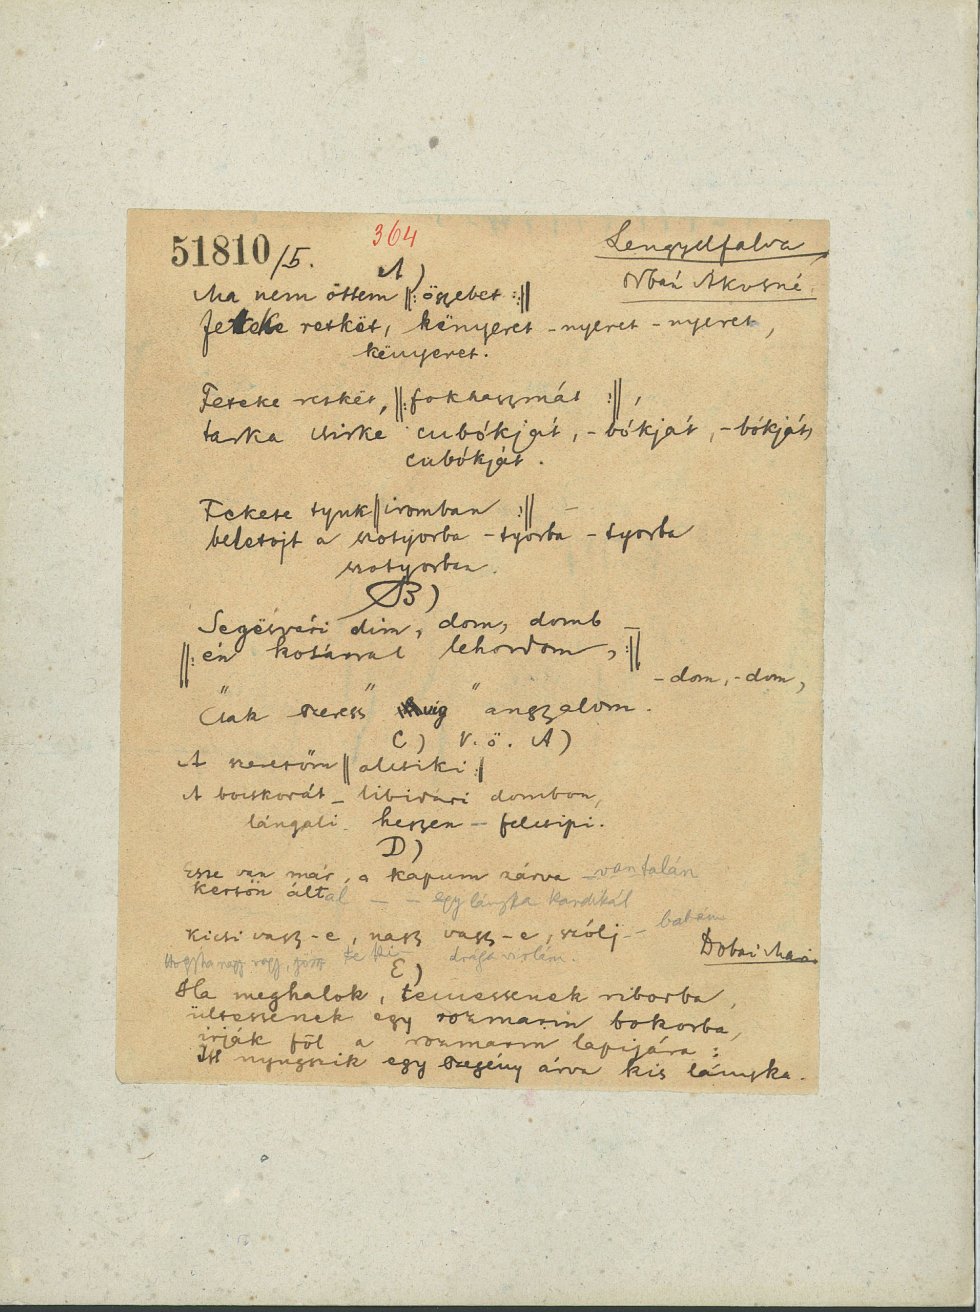 51810/5.
364
Lengyelfalva
Orbán Ákosné
A)
Ma nem öttem ‖: öszebet :‖
feteke retket, kënyeret - nyeret - nyeret,
kënyeret.
Feteke retkët, ‖: fokhaszmát :‖,
tarka csirke cubókját, - bókját, - bókját,
cubókját.
Fekete tyuk ‖ iromban :‖
beletojt a szotyorba - tyorba - tyorba
szotyorban.
B)
Segësvári dim, dom, domb
‖: én kosárral lehordom, :‖
- dom, - dom,
"Csak szeress" "angzalom.
C) V.ö. A)
A szeretőm ‖ alcsiki :‖
A bocskorát - libidári dombon,
lángali heszen - felcsipi.
D)
Esse van már, a kapum zárva - van talán
kertön által - - egy lányka kardikál
kicsi vagy-e, nagy vagy-e, szólj - babám
drága violám.
Dobai Mari
E)
Ha meghalok, temessenek viborba,
ültessenek egy rozmarin bokorba,
irják föl a rozmarin lapijára:
Itt nyugszik egy szegény árva kis lányka.